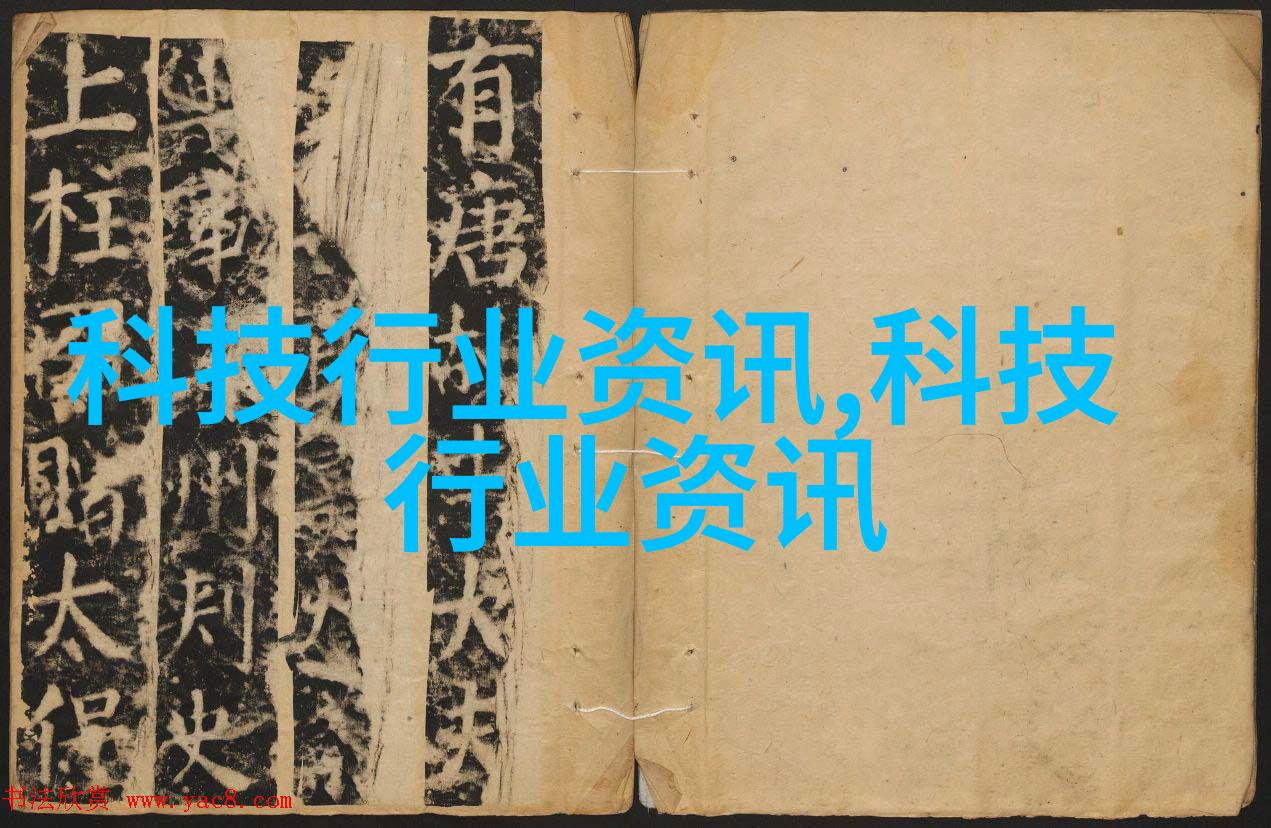 科技行业资讯,科技
行业资讯
有唐大夫
州刺史
上柱國贈太保
书法欣赏 www.yac8.com